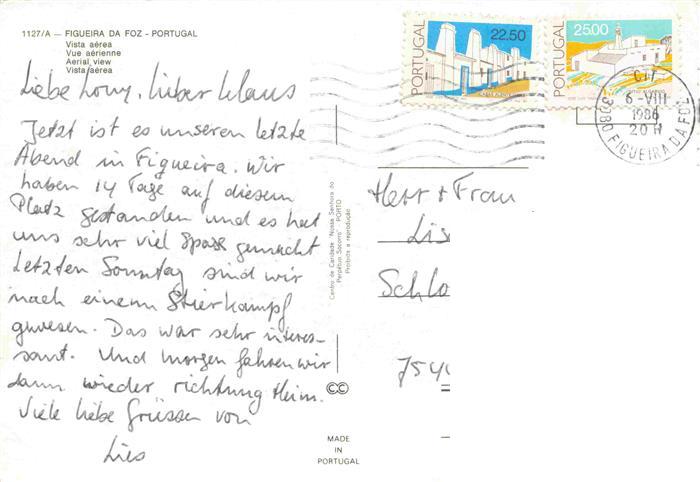 1127/A — FIGUEIRA DA FOZ - PORTUGAL
Vista aérea
Vue aérienne
Aerial view
Vista aérea
Liebe Lony, lieber Klaus
Jetzt ist es unseren letzte
Abend in Figueira. Wir
haben 14 Tage auf diesem
Platz gestanden und es hat
uns sehr viel Spass gemacht
Letzten Sonntag sind wir
nach einem Stierkampf
gewesen. Das war sehr interes-
sant. Und morgen fahren wir
dann wieder richtung Heim.
Viele liebe Grüssen von
Lies
Centro de Caridade "Nossa Senhora do
Perpétuo Socorro" - PORTO
Proibida a reprodução
MADE
IN
PORTUGAL
PORTUGAL
22.50
PORTUGAL
25.00
CTF
6-VIII
1986
20 H
3080 FIGUEIRA DA FOZ
Herr + Frau
Lis
Schlo
754